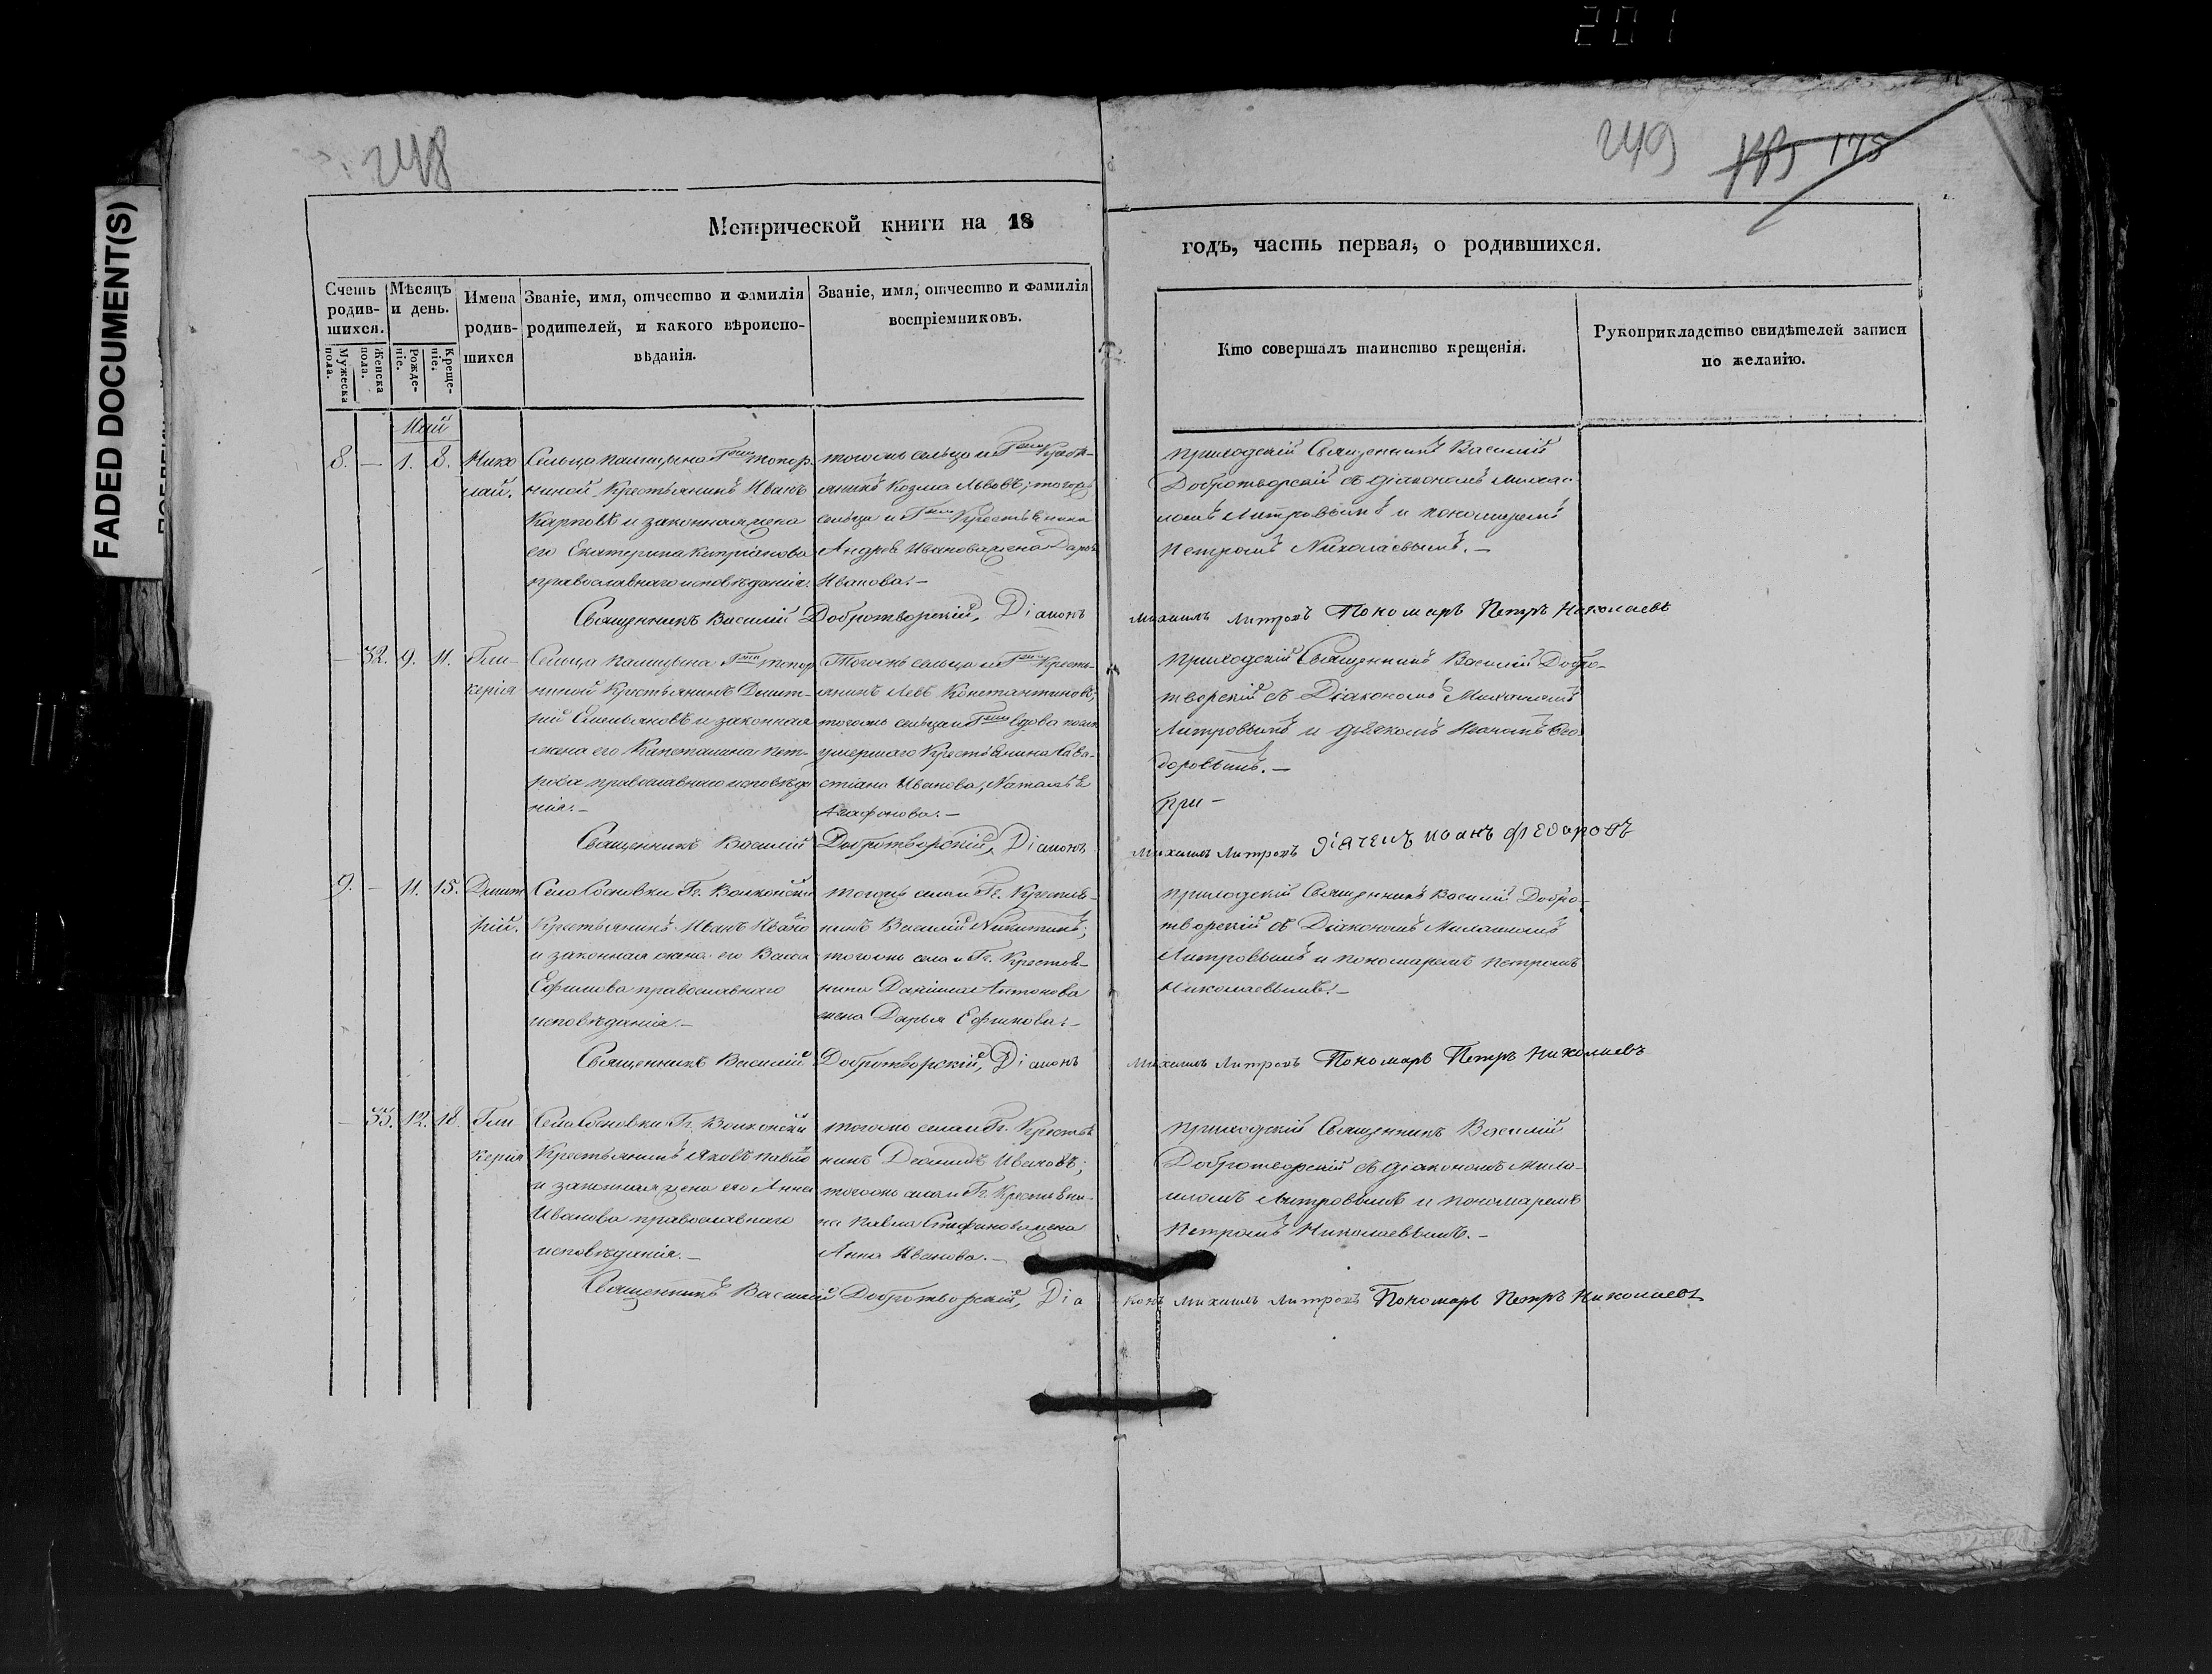 201
FADED DOCUMENT(S)
248
249 175
Метрической книги на 18
годъ, часть первая, о родившихся.
Счетъ родив-шихся.
Мужеска пола.
Женска пола.
Мѣсяцъ и день.
Рожде-ніе.
Креще-ніе.
Имена родив-шихся
Званіе, имя, отчество и фамилія родителей, и какого вѣроиспо-вѣданія.
Званіе, имя, отчество и фамилія воспріемниковъ.
Кто совершалъ таинство крещенія.
Рукоприкладство свидѣтелей записи по желанію.
Май
8. — 1. 8. Нико
лай.
Сельца
ниной Крестьянинъ Иванъ
Карповъ и законная жена
его Екатерина Кипріянова
православнаго исповѣданія.
тогожъ сельца и Г Крестья-
янинъ Козма Львовъ; тогожъ
сельца и Г Крестьянина
Андрея Иванова жена Дарья
Иванова.—
приходскій Священникъ Василій
Добротворскій съ діакономъ Михаи-
ломъ Митровымъ и пономаремъ
Петромъ Николаевымъ.—
Священникъ Василій Добротворскій, Діаконъ
Михаилъ Митровъ Пономарь Петръ Николаевъ
— 32. 9. 11. Гли-
керія
Сельца
ниной Крестьянинъ Димит-
рій Емельяновъ и законная
жена его Капеталина Пет-
рова православнаго исповѣда
нія.—
Тогожъ сельца и Г Кресть-
янинъ Левъ Константиновъ;
тогожъ сельца и Г вдова
умершаго Крестьянина Сева-
стіана Иванова, Наталья
Агафонова.—
приходскій Священникъ Василій Добро-
творскій съ Діакономъ Михаиломъ
Митровымъ и дьячкомъ Иваномъ Ѳео
доровымъ.—
При—
Священникъ Василій Добротворскій, Діаконъ
Михаилъ Митровъ діячекъ иванъ федаровъ
9. — 11. 15. Димит
рій.
Села Сосновки Гг. Волконски
Крестьянинъ Иванъ Ивано
и законная жена его Васса
Ефимова православнаго
исповѣданія.—
тогожъ села и Гг. Крестья-
нинъ Василій Никитинъ;
тогожъ села и Гг. Крестья-
нина Даніила Антонова
жена Дарья Ефимова.—
приходскій Священникъ Василій Добро-
творскій съ Діакономъ Михаиломъ
Митровымъ и пономаремъ Петромъ
Николаевымъ.—
Священникъ Василій Добротворскій, Діаконъ
Михаилъ Митровъ Пономарь Петръ Николаевъ
— 33. 12. 18. Гли
керія
Села Сосновки Гг. Волконски
Крестьянинъ Яковъ Павло
и законная жена его Анна
Иванова православнаго
исповѣданія.—
тогожъ села и Гг. Крестья
нинъ Леонидъ Ивановъ;
тогожъ села и Гг. Крестьяни-
на Павла Стефанова жена
Анна Иванова.—
приходскій Священникъ Василій
Добротворскій съ діакономъ Миха-
иломъ Митровымъ и пономаремъ
Петромъ Николаевымъ.—
Священникъ Василій Добротворскій, Діа
конъ Михаилъ Митровъ Пономарь Петръ Николаевъ